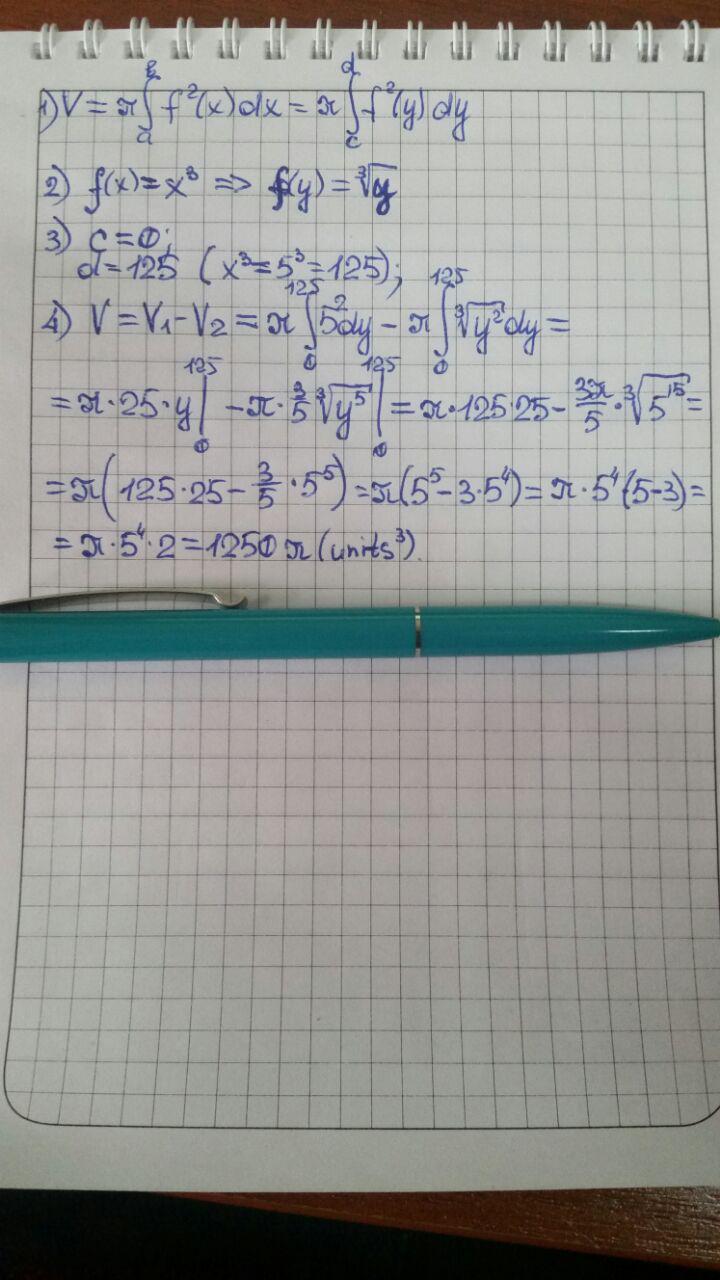 1) V = π∫ₐᵇ f²(x)dx = π∫_c^d f²(y)dy
2) f(x) = x³ => f(y) = ∛y
3) c = 0;
d = 125 (x³ = 5³ = 125);
4) V = V₁ - V₂ = π∫₀¹²⁵ 5²dy - π∫₀¹²⁵ ∛(y²)dy =
= π·25·y|₀¹²⁵ - π·3/5 ∛(y⁵)|₀¹²⁵ = π·125·25 - 3π/5·∛(5¹⁵) =
= π(125·25 - 3/5·5⁵) = π(5⁵ - 3·5⁴) = π·5⁴(5-3) =
= π·5⁴·2 = 1250π (units³).